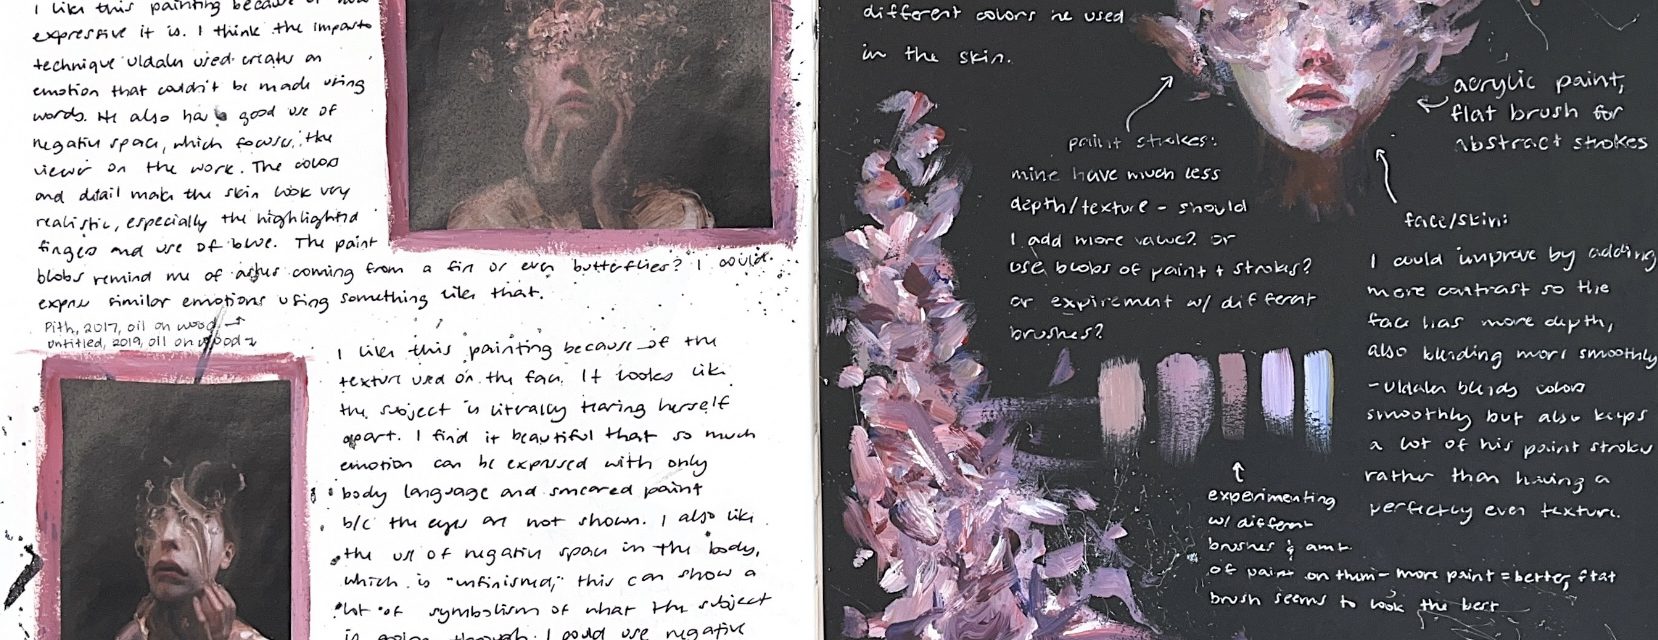 I like this painting because of how
expressive it is. I think the impasto
technique Uldalen used creates an
emotion that couldn't be made using
words. He also has good use of
negative space, which focuses the
viewer on the work. The colors
and detail make the skin look very
realistic, especially the highlighted
fingers and use of blue. The paint
blobs remind me of ashes coming from a fire or even butterflies? I could
express similar emotions using something like that.
Pith, 2017, oil on wood →
untitled, 2019, oil on wood
I like this painting because of the
texture used on the face. It looks like
the subject is literally tearing herself
apart. I find it beautiful that so much
emotion can be expressed with only
body language and smeared paint
b/c the eyes are not shown. I also like
the use of negative space in the body,
which is "unfinished," this can show a
lot of symbolism of what the subject
is going through. I could use negative
different colors he used
in the skin.
acrylic paint,
flat brush for
abstract strokes
paint strokes:
mine have much less
depth/texture - should
I add more value? or
use blobs of paint + strokes?
or expirement w/ different
brushes?
face/skin:
I could improve by adding
more contrast so the
face has more depth,
also blending more smoothly
- Uldalen blends colors
smoothly but also keeps
a lot of his paint strokes
rather than having a
perfectly even texture.
experimenting
w/ different
brushes & amt
of paint on them - more paint = better, flat
brush seems to look the best